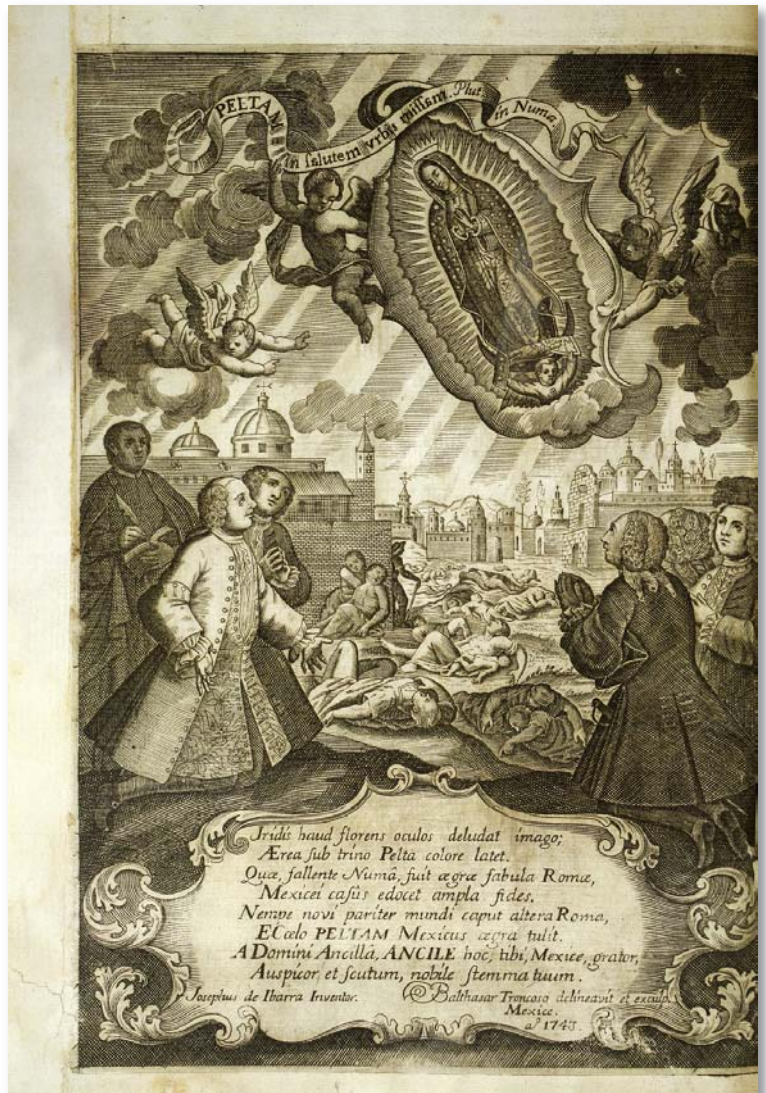 PELTAM in salutem vrbis missam. Plut. in Numa.
Iridis haud florens oculos deludat imago;
Ærea sub trino Pelta colore latet.
Quæ, fallente Numâ, fuit ægræ fabula Romæ,
Mexicei casûs edocet ampla fides.
Nempe novi pariter mundi caput altera Roma,
E Cœlo PELTAM Mexicus ægra tulit.
A Domini Ancillâ, ANCILE hoc, tibi, Mexice, grator,
Auspicor, et scutum, nobile stemma tuum.
Josephus de Ibarra Inventor. Balthasar Troncoso delineavit et exculp.
Mexice.
aº 1743.